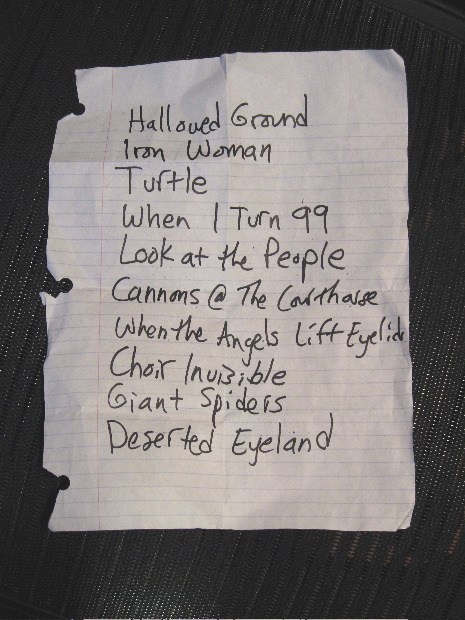 Hallowed Ground
Iron Woman
Turtle
When I Turn 99
Look at the People
Cannons @ The Courthouse
When the Angels Lift Eyelids
Choir Invisible
Giant Spiders
Deserted Eyeland